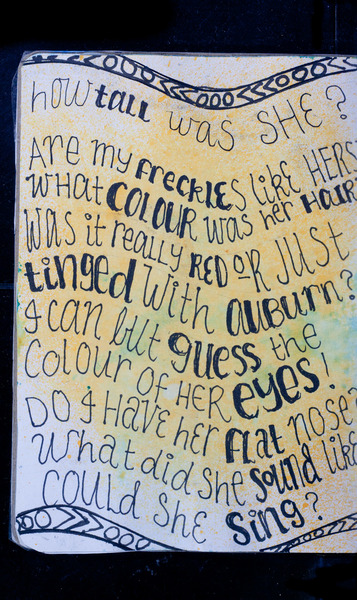 how tall was SHE?
Are my freckles like HERS
What COLOUR was her HAIR
Was it really RED OR JUST
tinged with AUBURN?
I can but guess the
COLOUR OF HER eyes!
DO I HAVE her flat nose?
What did she sound like
COULD SHE sing?